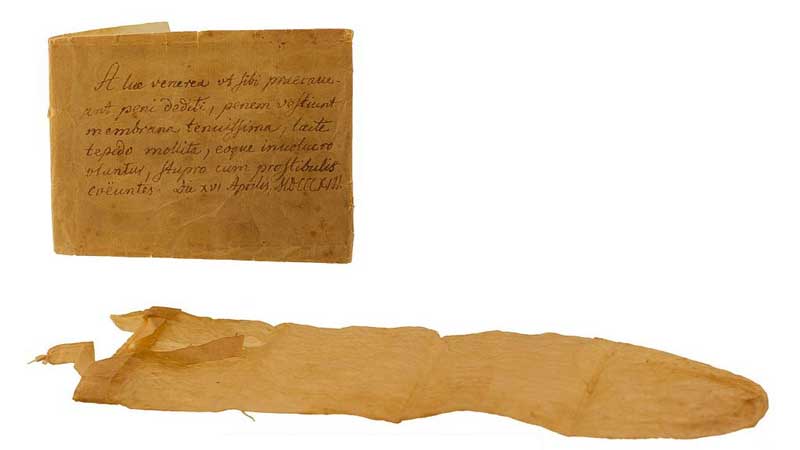 A lue venerea ut sibi praecave-
ant peni dediti, penem vestiunt
membrana tenuissima, lacte
tepido mollita, eoque involucro
utuntur, stupro cum prostibulis
coëuntes. Die XVI Aprilis